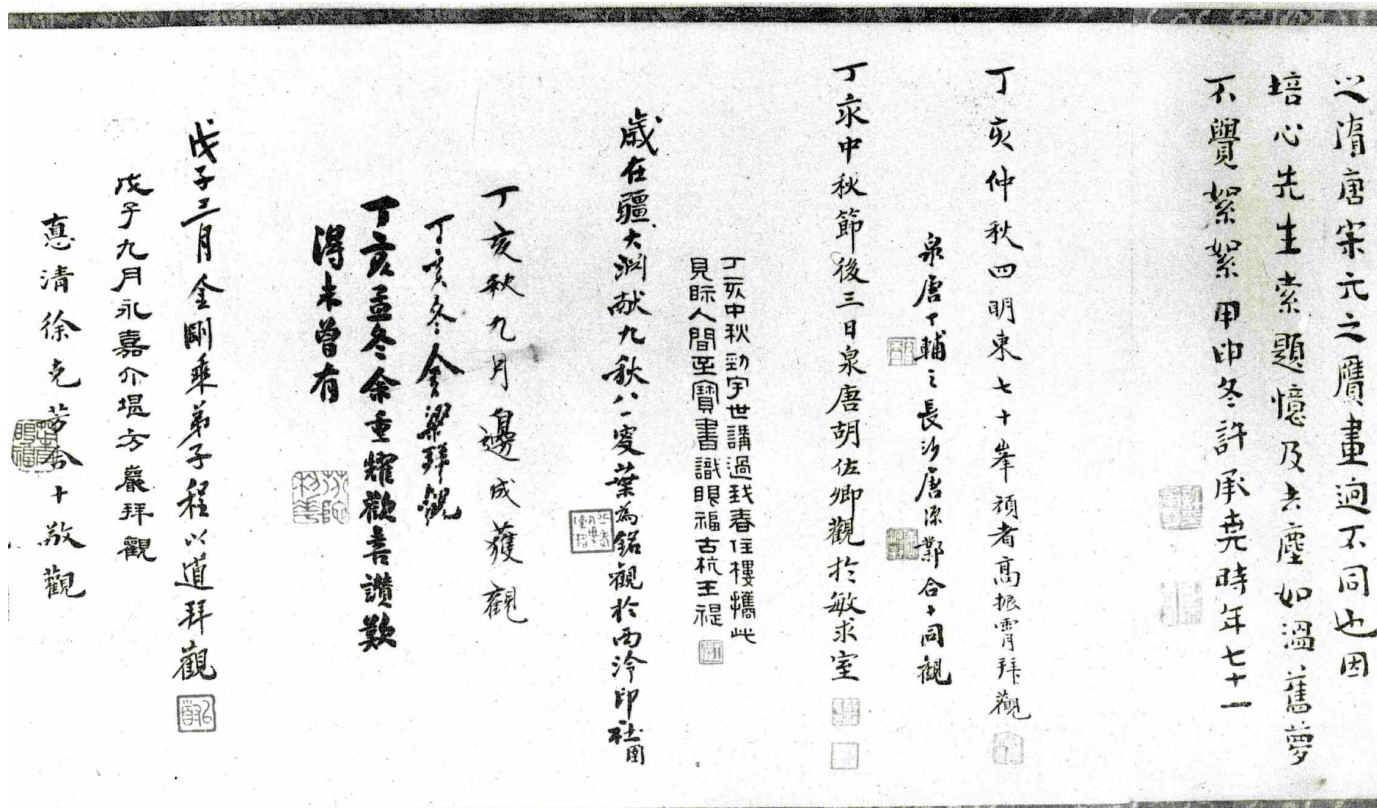 之隋唐宋元之贋畫迥不同也因
培心先生索題憶及去塵如溫舊夢
不覺絮絮甲申冬許承堯時年七十一
丁亥仲秋四明東七十峯頑者高振霄拜觀
泉唐丁輔之長沙唐源鄴合十同觀
丁亥中秋節後三日泉唐胡佐卿觀於敏求室
丁亥中秋勁宇世講過我春住樓攜此
見眎人間至寶書識眼福古杭王禔
歲在疆大淵献九秋八一叟葉為銘觀於西泠印社圖
丁亥秋九月邊成獲觀
丁亥冬金梁拜觀
丁亥孟冬余重耀歡喜讚歎
得未曾有
戊子三月金剛乘弟子程以道拜觀
戊子九月永嘉介堪方巖拜觀
惪清徐克芳合十敬觀